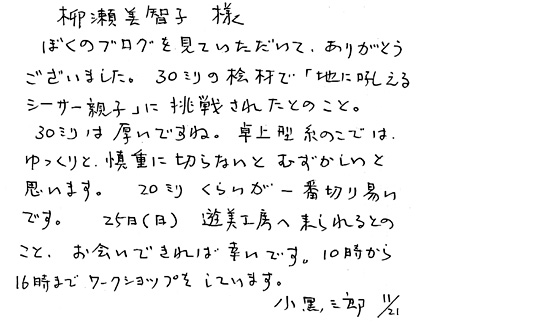 柳瀬美智子 様
ぼくのブログを見ていただいて、ありがとう
ございました。30ミリの桧材で「地に吼える
シーサー親子」に挑戦されたとのこと。
30ミリは厚いですね。卓上型糸のこでは、
ゆっくりと、慎重に切らないとむずかしいと
思います。 20ミリくらいが一番切り易い
です。 25日(日) 遊美工房へ来られるとの
こと、お会いできれば幸いです。10時から
16時までワークショップをしています。
小黒三郎 11/21